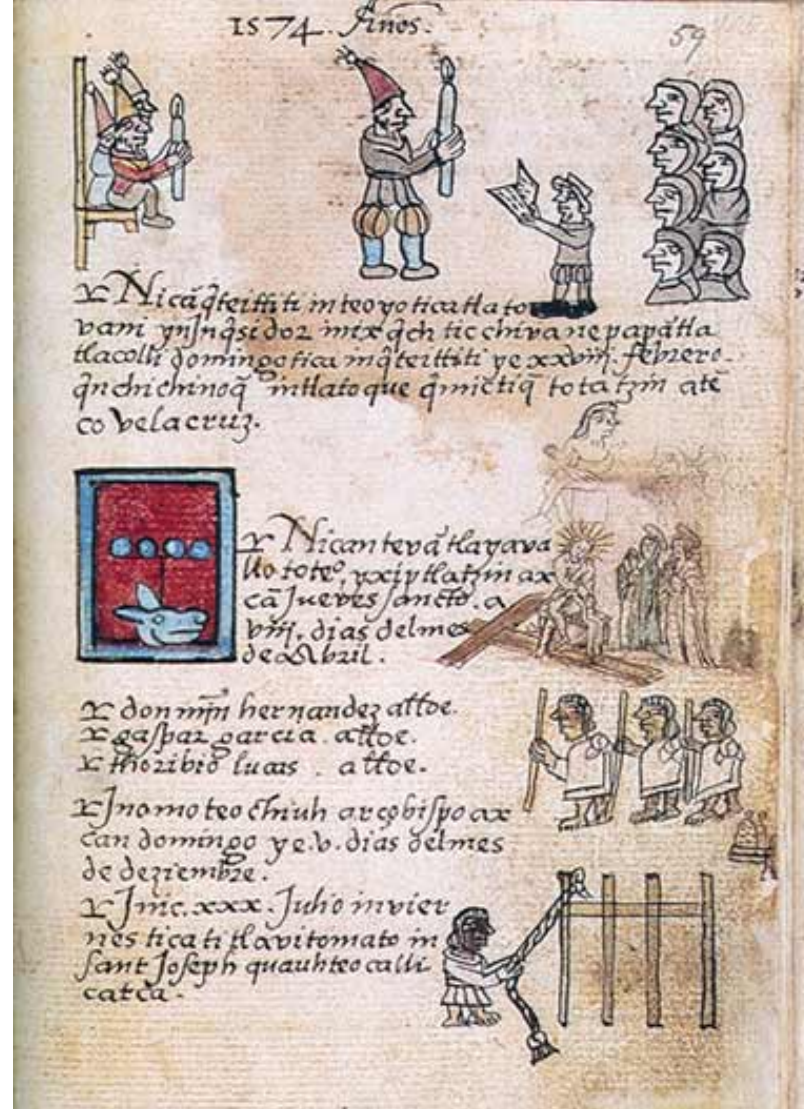 1574. Años.
59
Nicā q̄teittiti in teoyotica tlato
vani ynjnq̄sidor mixq̄ch ticchiva nepapā tla
tlacolli domingo tica inq̄teittiti ye xxviij. febrero.
q̄nchichinoq̄ intlatoque q̄mictiq̄ totatzin atē
co velacruz.
Nican tevā tlayava
lło toteº. yxiptlatzin ax
cā Jueves sancto. a
viij. dias del mes
de Abril.
don mīn hernandez allde.
gaspar garcia. allde.
thoribio lucas. allde.
Jnomoteochiuh arçobispo ax
can domingo ye.v. dias del mes
de deziembre.
Jnic.xxx. Julio in vier
nes tica titlavitomato in
sant Joseph quauhteocalli
catca.